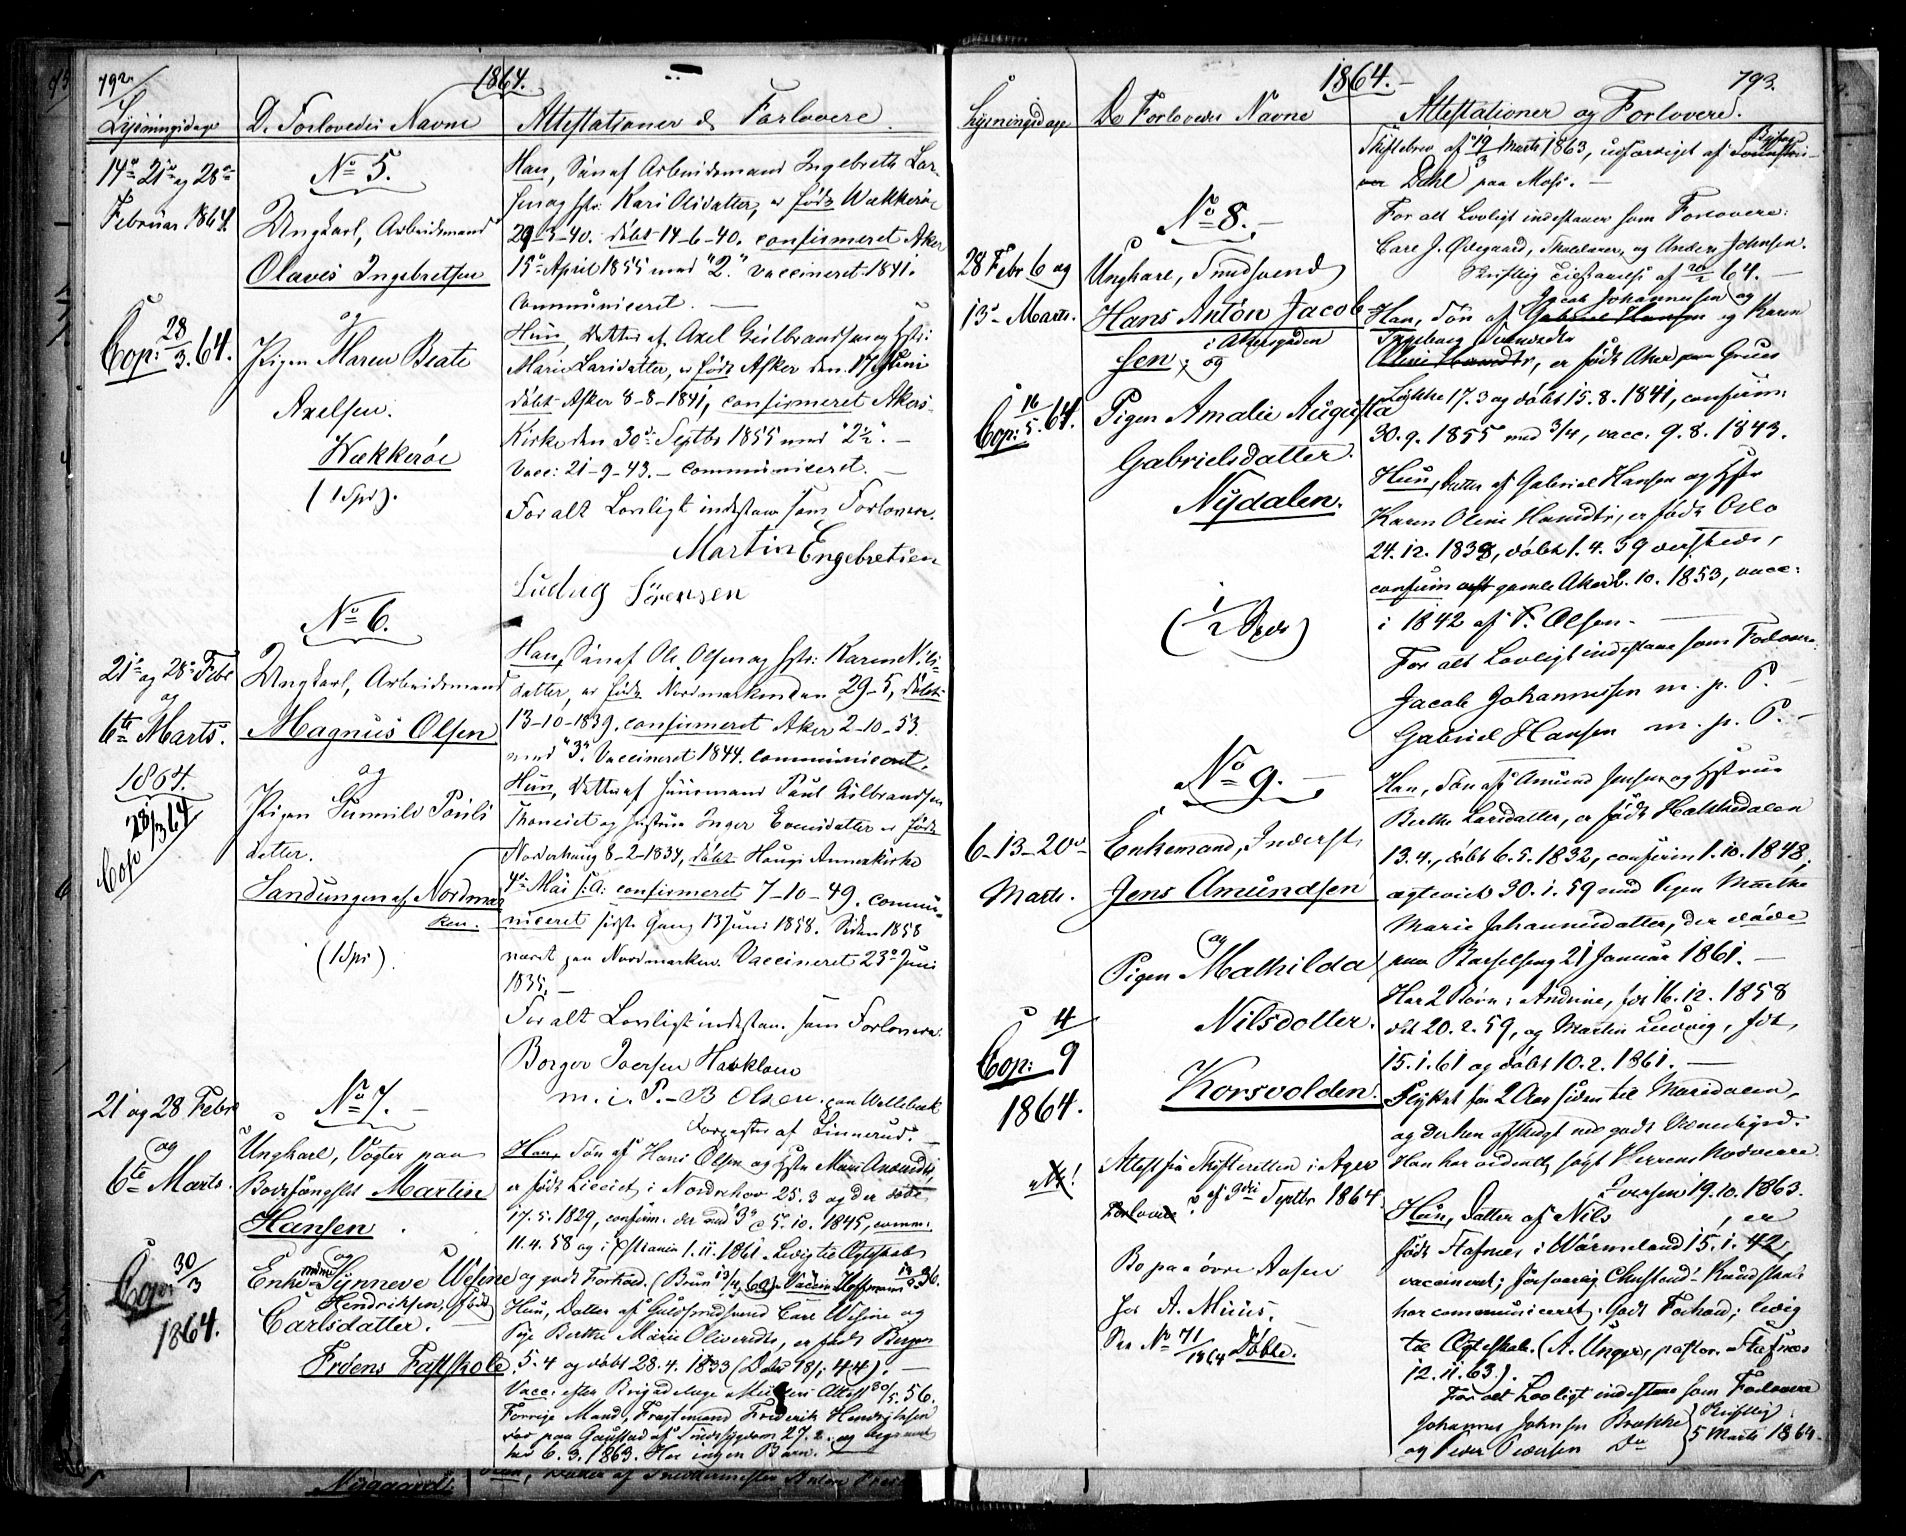 792
1864.
Lysningsdage
De Forlovedes Navne
Attestationer & Forlovere.
14de 21de og 28de
Februar 1864.
No 5.
Ungkarl, Arbeidsmand
Olaves Ingebretsen
og
Pigen Maren Beate
Axelsen.
Wækkerøe
(1 Spd).
Cop: 28/3. 64.
Han, Søn af Arbeidsmand Ingebreth Lar-
sen og Hstr: Kari Olsdatter, er født Wækkerøe
29-3-40. døbt 14-6-40. confirmeret Aker
15de April 1855 med "2." vaccineret 1841.
communiceret.
Hun, Datter af Axel Gulbrandsen og Hstr:
Marie Larsdatter, er født Asker den 17 Juni
døbt Asker 8-8-1841, confirmeret Akers
Kirke den 30de Septbr 1855 med "2½".
Vacc: 21-9-43. communiceret.
For alt Lovligt indestaae som Forlovere.
Martin Engebretsen
Ludvig Sörensen
No 6.
21de og 28de Febr
og
6te Marts.
1864.
Cop 28/3 64
Ungkarl, Arbeidsmand
Magnus Olsen
og
Pigen Gunnild Pouls
datter.
Sandungen af Nordmar
ken.
(1 Spd).
Han, Søn af Ole Olsen og Hstr: Karen Nils
datter, er født Nordmarken den 29-5, døbt
13-10-1839, confirmeret Aker 2-10-53.
med "3". Vaccineret 1844. communiceret.
Hun, Datter af Huusmand Paul Gulbrandsen
og Hustru Inger Evensdatter er født
Norderhoug 8-2-1834, døbt Hougs Annexkirke
4de Mai s: A: confirmeret 7-10-49. commu-
niceret sidste Gang 13 Juni 1858. Siden 1858
været paa Nordmarken. Vaccineret 23de Juni
1835.
For alt Lovligt indestaae som Forlovere.
Borger Iversen Hakloen
m. i. P. - B Olsen paa
af Linnerud.
No 7.
21 og 28 Febr
og
6te Marts.
Cop: 30/3
1864.
Ungkarl, Vogter paa
Bodsfængslet Martin
Hansen
og
Enke Synneve Wesine
Hendriksen, født
Carlsdatter.
Frøens Fattskole.
Han, Søn af Hans Olsen og Hstr Mari Amundsd,
er født i Norderhov 25.3 og der døbt
17.5.1829, confirm. der med "3" 5.10.1845, comm:
11.4.58 og i Xstiania 1.11.1861. Ledig til Ægteskab
og godt Forhold.
Hun, Datter af Guldsmedsvend Carl Wesine og
Pige Berthe Marie Olivensdtr, er født Bergen
5.4 og døbt 28.4.1833
Vacc: efter Brigadelæge Attest 30/5. 56.
Forrige Mand, Fragtemand Frederik Hendriksen
døde paa Gaustad af Sindssygdom 27.2. og begravet
her 6.3.1863. Har ingen Børn.
1864.
793.
Lysningsdage
De Forlovedes Navne
Attestationer og Forlovere.
Skiftebrev af 19/3 Marts 1863, udfærdiget af
Dahl paa Moss.
No 8.
28 Febr 6 og
13de Marts.
Cop: 16/5. 64.
Ungkarl, Smedsvend
Hans Anton Jacob
sen, i Akersgaden
og
Pigen Amalie Augusta
Gabrielsdatter.
Nydalen.
(1/2 Spd)
For alt Lovligt indestaaer som Forlovere:
Carl J. Øiegaard, og Anders Johnsen.
Skriftlig Tilstaaelse af 20/2 64.
Jacob Johannessen og
Han, Søn af Gabriel Hansen og Karen
Ingeborg Svendsdtr
Oline Hansdtr, er født Aker paa Grues
Løkke 17.3 og døbt 15.8.1841, confirm:
30.9.1855 med 3/4, vacc. 9.8.1843.
Hun, Datter af Gabriel Hansen og Hstr
Karen Oline Hansdtr, er født Oslo
24.12.1838, døbt 1.4.39 dersteds,
confirm gamle Aker 2.10.1853, vacc:
i 1842 af P. Olsen.
For alt Lovligt indestaae som Forlovere
Jacob Johannessen m. p. P.
Gabriel Hansen m. p. P.
No 9.
6-13-20de
Marts.
Cop: 4/9
1864.
Enkemand, Inderst,
Jens Amundsen
og
Pigen Mathilda
Nilsdotter.
Korsvolden.
Attest fra Skifteretten i Ager
af 9de Septbr 1864.
Bo paa øvre Aasen
hos A. Muus.
See No 71/1864 Døbte.
Han, Søn af Amund Jensen og Hstrue
Berthe Larsdatter, er født
13.4., døbt 6.5.1832, confirm 1.10.1848;
ægteviet 30.1.59 med Pigen Marthe
Marie Johannesdatter, der døde
paa Barselseng 21 Januar 1861.
Har 2 Børn: Andrine, født 16.12.1858
døbt 20.2.59, og Martin Ludvig, født,
15.1.61 og døbt 10.2.1861.
Flyttet for 2 Aar siden til Maridalen,
Han har
Iversen 19.10.1863.
Hun, Datter af Nils , er
født Stafnes i Wärmeland 15.1.42,
vaccineret; forsvarlig Christend: Kundskab
har communiceret. Godt Forhold; ledig
til Ægteskab. (A. Unger, pastor. Stafnes
12.11.63).
For alt Lovligt indestaae som Forlovere
Johannes Johnsen Brække } Skriftlig
og Peder Pedersen Do } 5 Marts 1864.